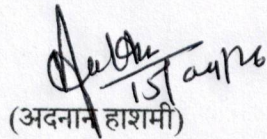 15/04/26
(अदनान हाशमी)